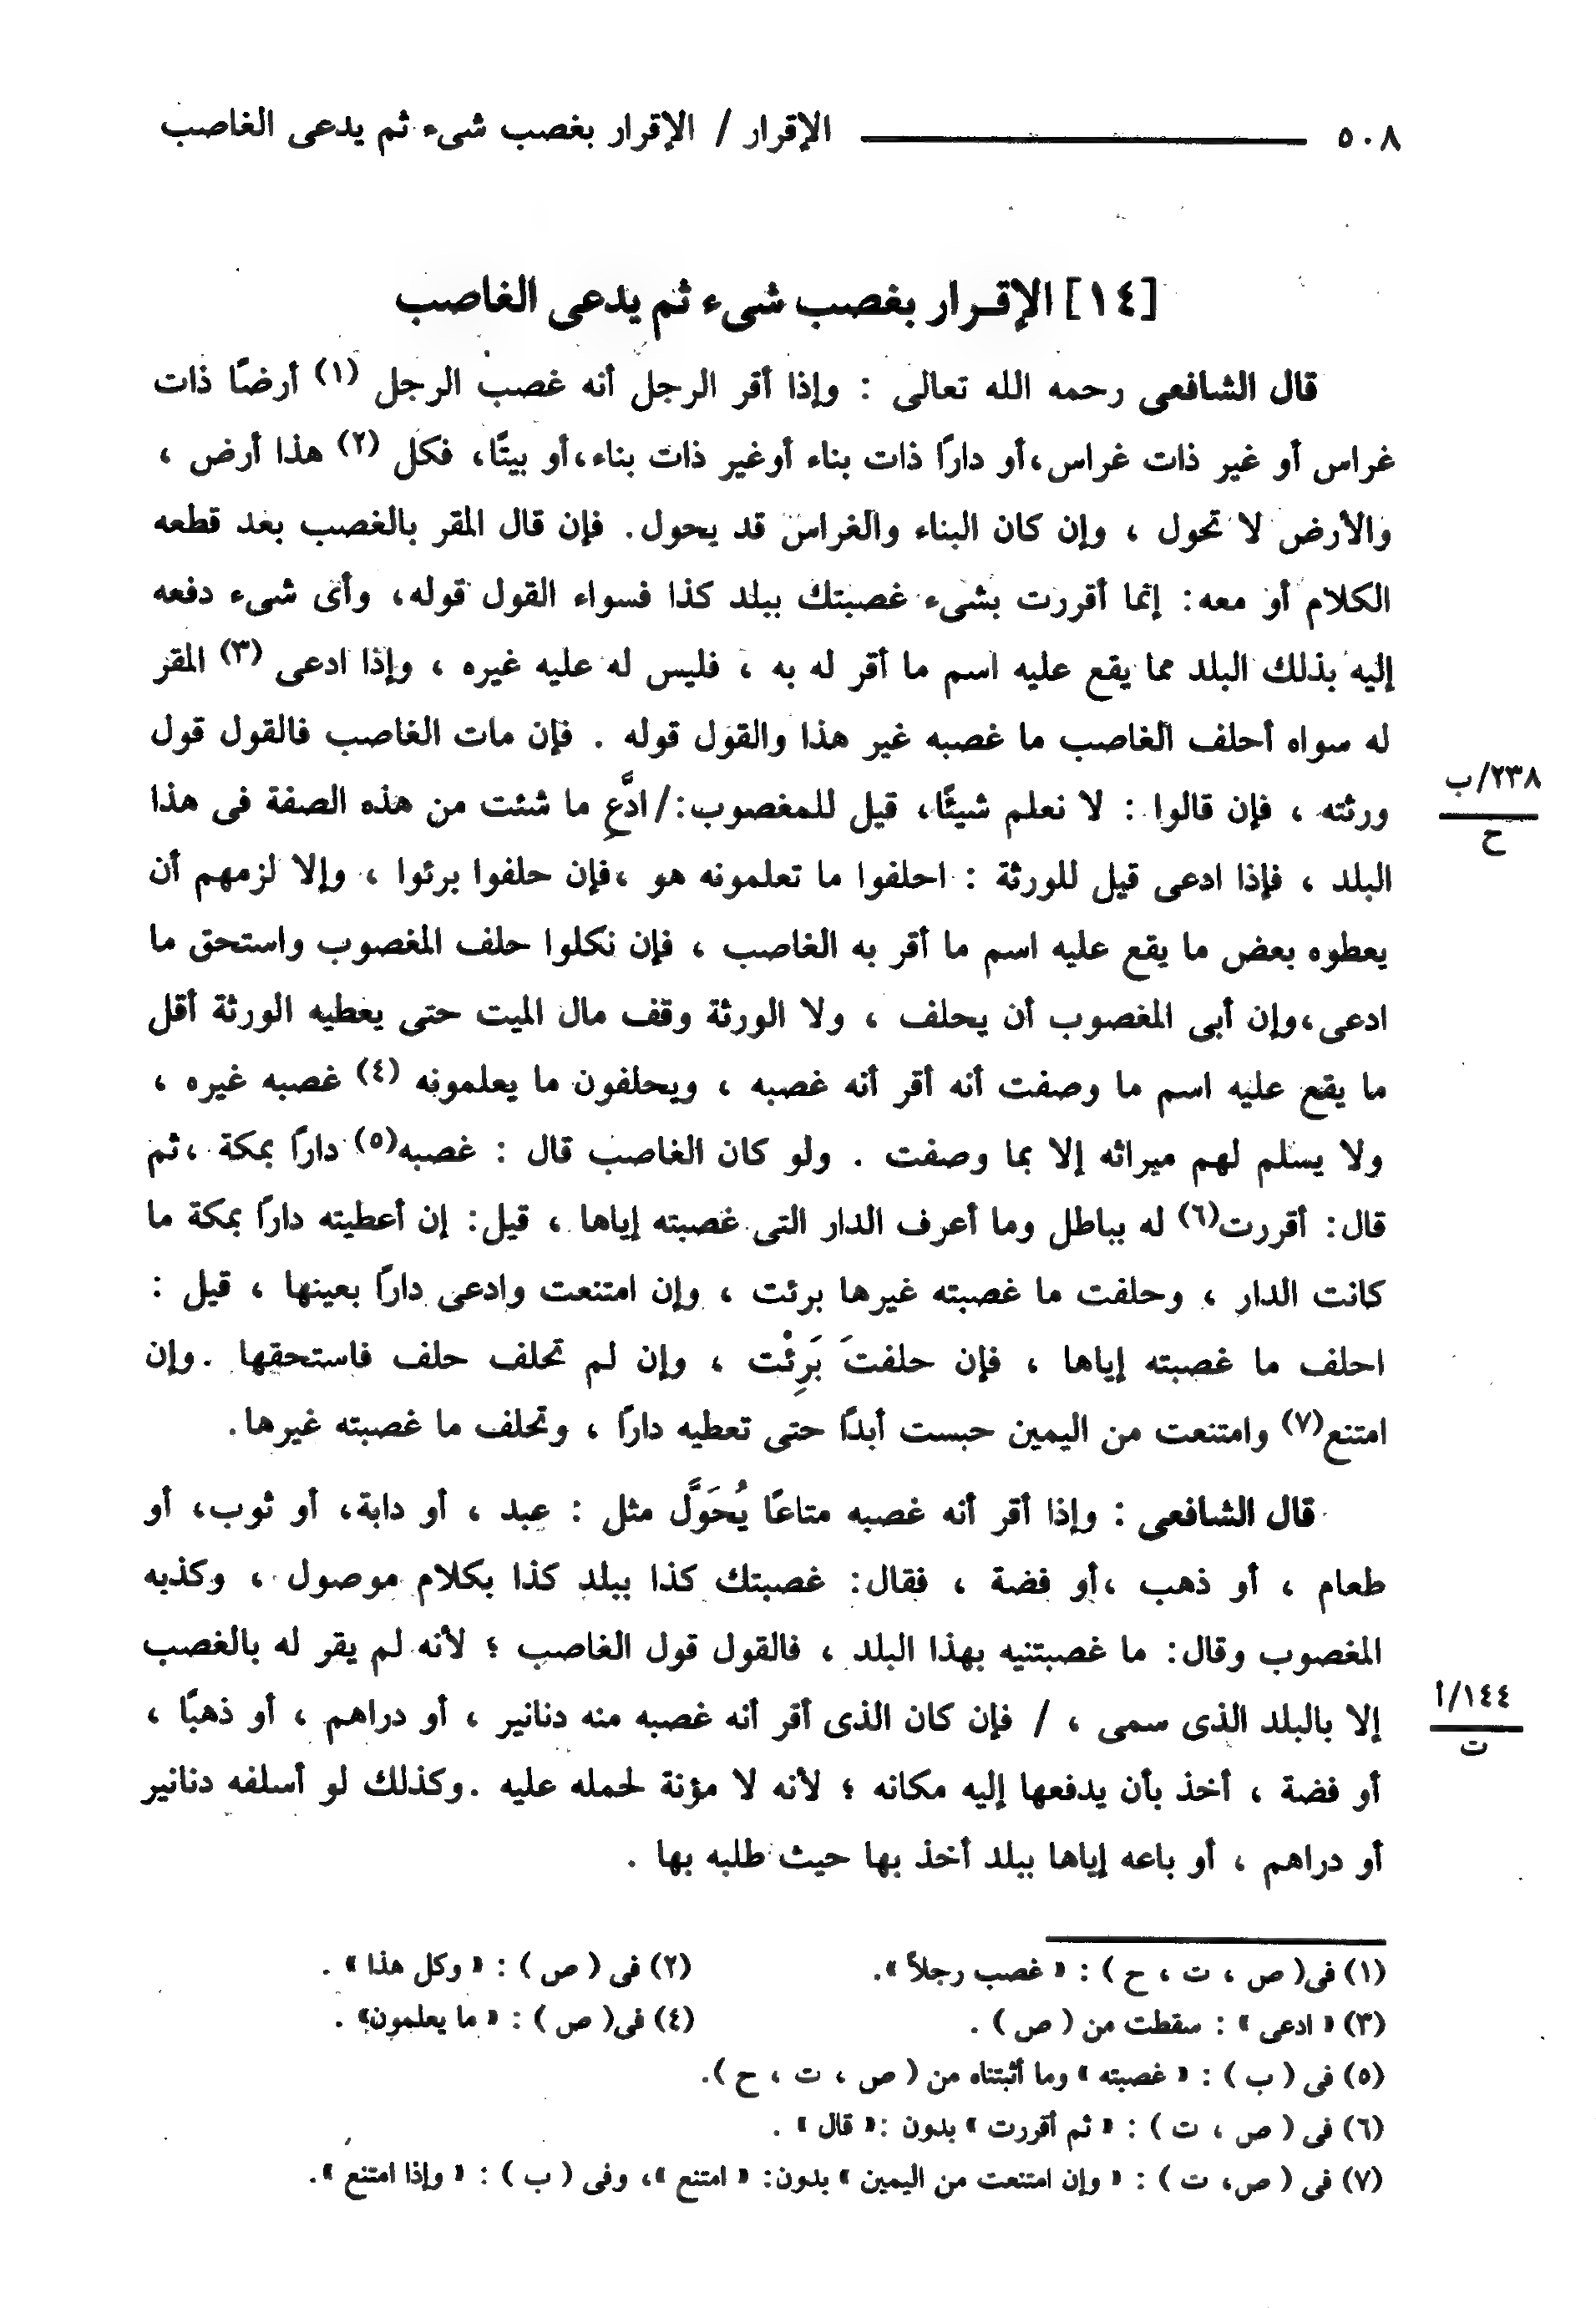 ٥٠٨ الإقرار / الإقرار بغصب شىء ثم يدعى الغاصب
[١٤] الإقـرار بغصب شىء ثم يدعى الغاصب
قال الشافعى رحمه الله تعالى : وإذا أقر الرجل أنه غصب الرجل (١) أرضًا ذات
غراس أو غير ذات غراس،أو دارًا ذات بناء أوغير ذات بناء،أو بيتًا، فكل (٢) هذا أرض ،
والأرض لا تحول ، وإن كان البناء والغراس قد يحول. فإن قال المقر بالغصب بعد قطعه
الكلام أو معه: إنما أقررت بشىء غصبتك ببلد كذا فسواء القول قوله، وأى شىء دفعه
إليه بذلك البلد مما يقع عليه اسم ما أقر له به ، فليس له عليه غيره ، وإذا ادعى (٣) المقر
له سواه أحلف الغاصب ما غصبه غير هذا والقول قوله . فإن مات الغاصب فالقول قول
ورثته ، فإن قالوا : لا نعلم شيئًا، قيل للمغصوب:/ ادَّعِ ما شئت من هذه الصفة فى هذا
٢٣٨/ب
ح
البلد ، فإذا ادعى قيل للورثة : احلفوا ما تعلمونه هو ،فإن حلفوا برئوا ، وإلا لزمهم أن
يعطوه بعض ما يقع عليه اسم ما أقر به الغاصب ، فإن نكلوا حلف المغصوب واستحق ما
ادعى،وإن أبى المغصوب أن يحلف ، ولا الورثة وقف مال الميت حتى يعطيه الورثة أقل
ما يقع عليه اسم ما وصفت أنه أقر أنه غصبه ، ويحلفون ما يعلمونه (٤) غصبه غيره ،
ولا يسلم لهم ميراثه إلا بما وصفت . ولو كان الغاصب قال : غصبه(٥) دارًا بمكة ،ثم
قال: أقررت(٦) له بباطل وما أعرف الدار التى غصبته إياها ، قيل: إن أعطيته دارًا بمكة ما
كانت الدار ، وحلفت ما غصبته غيرها برئت ، وإن امتنعت وادعى دارًا بعينها ، قيل :
احلف ما غصبته إياها ، فإن حلفتَ بَرِئْت ، وإن لم تحلف حلف فاستحقها .وإن
امتنع(٧) وامتنعت من اليمين حبست أبدًا حتى تعطيه دارًا ، وتحلف ما غصبته غيرها.
قال الشافعى : وإذا أقر أنه غصبه متاعًا يُحَوَّل مثل : عبد ، أو دابة، أو ثوب، أو
طعام ، أو ذهب ،أو فضة ، فقال: غصبتك كذا ببلد كذا بكلام موصول ، وكذبه
المغصوب وقال: ما غصبتنيه بهذا البلد ، فالقول قول الغاصب ؛ لأنه لم يقر له بالغصب
إلا بالبلد الذى سمى ، / فإن كان الذى أقر أنه غصبه منه دنانير ، أو دراهم ، أو ذهبًا ،
١٤٤/أ
ت
أو فضة ، أخذ بأن يدفعها إليه مكانه ؛ لأنه لا مؤنة لحمله عليه .وكذلك لو أسلفه دنانير
أو دراهم ، أو باعه إياها ببلد أخذ بها حيث طلبه بها .
(١) فى( ص ، ت ، ح ) : « غصب رجلاً ». (٢) فى ( ص ) : « وكل هذا » .
(٣) « ادعى » : سقطت من ( ص ) . (٤) فى( ص ) : « ما يعلمون» .
(٥) فى ( ب ) : « غصبته » وما أثبتناه من ( ص ، ت ، ح ).
(٦) فى ( ص ، ت ) : « ثم أقررت » بدون :« قال » .
(٧) فى ( ص، ت ) : « وإن امتنعت من اليمين » بدون: « امتنع »، وفى ( ب ) : « وإذا امتنع ».